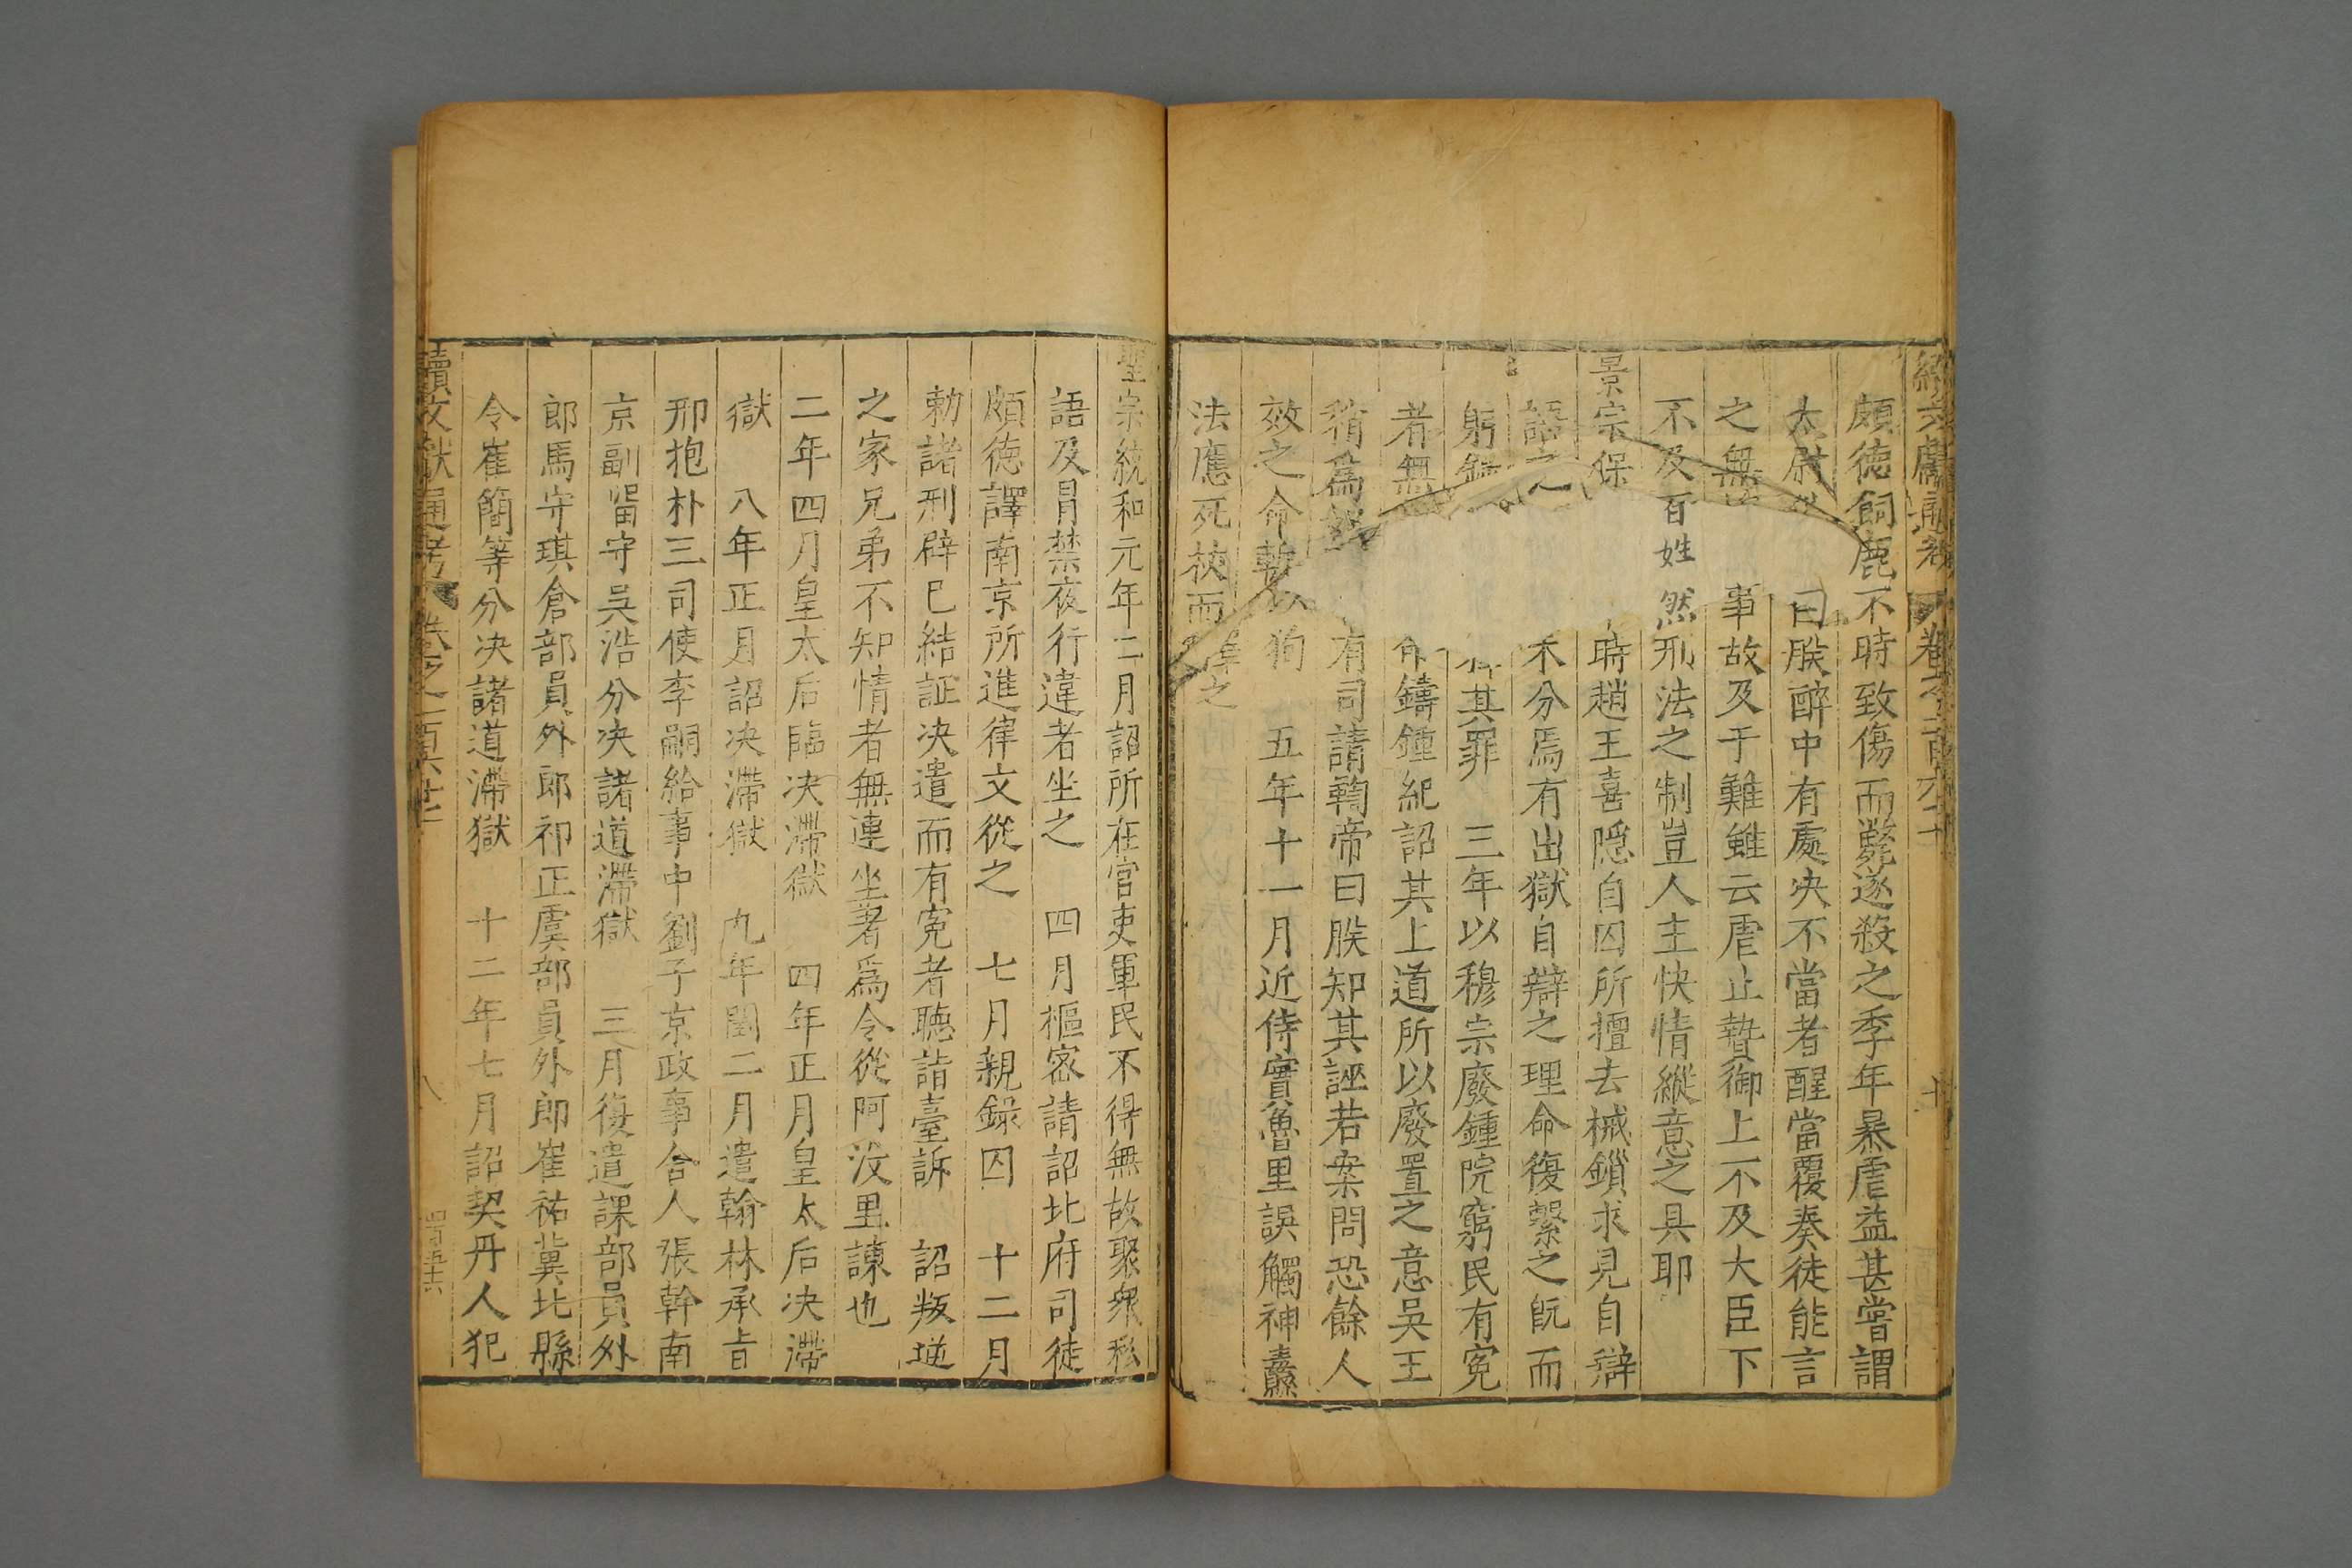 頗德飼鹿不時致傷而斃遂殺之季年暴虐益甚嘗謂
太尉 曰朕醉中有處决不當者醒當覆奏徒能言
之無 事故及于難雖云虐止䞇御上不及大臣下
不及百姓然刑法之制豈人主快情縱意之具耶
景宗保 時趙王喜隱自囚所擅去械鎖求見自辯
語之 不分焉有出獄自辯之理命復縶之旣而
躬録 其罪 三年以穆宗廢鍾院窮民有寃
者無 命鑄鍾紀詔其上道所以廢置之意吳王
稍爲 有司請鞫帝曰朕知其誣若案問恐餘人
效之命斬以狥 五年十一月近侍實魯里誤觸神纛
法應死杖而釋之
聖宗統和元年二月詔所在官吏軍民不得無故聚衆私
語及冒禁夜行違者坐之 四月樞密請詔北府司徒
頗德譯南京所進律文從之 七月親録囚 十二月
勅諸刑辟已結証决遣而有寃者聽詣臺訴 詔叛逆
之家兄弟不知情者無連坐著爲令從阿没里諫也
二年四月皇太后臨决滯獄 四年正月皇太后决滯
獄 八年正月詔决滯獄 九年閏二月遣翰林承旨
邢抱朴三司使李嗣給事中劉子京政事舍人張幹南
京副留守吳浩分决諸道滯獄 三月復遣課部員外
郎馬守琪倉部員外郎祁正虞部員外郎崔祐冀北縣
令崔簡等分决諸道滯獄 十二年七月詔契丹人犯
續文獻通考 卷之一百六十 八